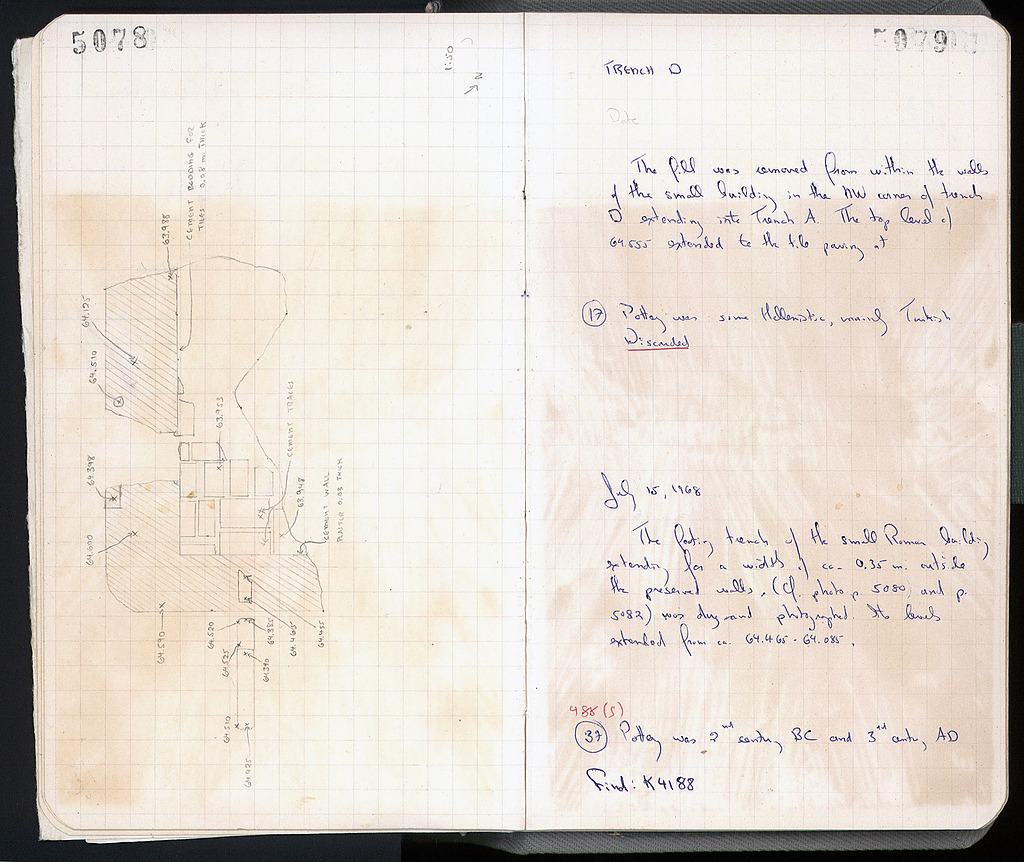 5078
1:50
N
CEMENT BEDDING FOR
TILES 0.08 m. THICK
63.988
64.125
64.510
63.953
CEMENT TRACES
64.398
63.948
CEMENT WALL
PLASTER 0.03 THICK
64.600
64.590
64.520
64.385
64.465
64.455
64.525
64.390
64.510
64.425
5079
TRENCH D
Date
The fill was removed from within the walls
of the small building in the NW corner of trench
D extending into Trench A. The top level of
64.555 extended to the tile paving at
17 Pottery was some Hellenistic, mainly Turkish
Discarded
July 15, 1968
The footing trench of the small Roman building
extending for a width of ca. 0.35 m. outside
the preserved walls, (Cf. photo p. 5080 and p.
5082) was dug and photographed. Its levels
extended from ca. 64.465 - 64.085.
488 (5)
37 Pottery was 2nd century BC and 3rd century AD
Find: K4188